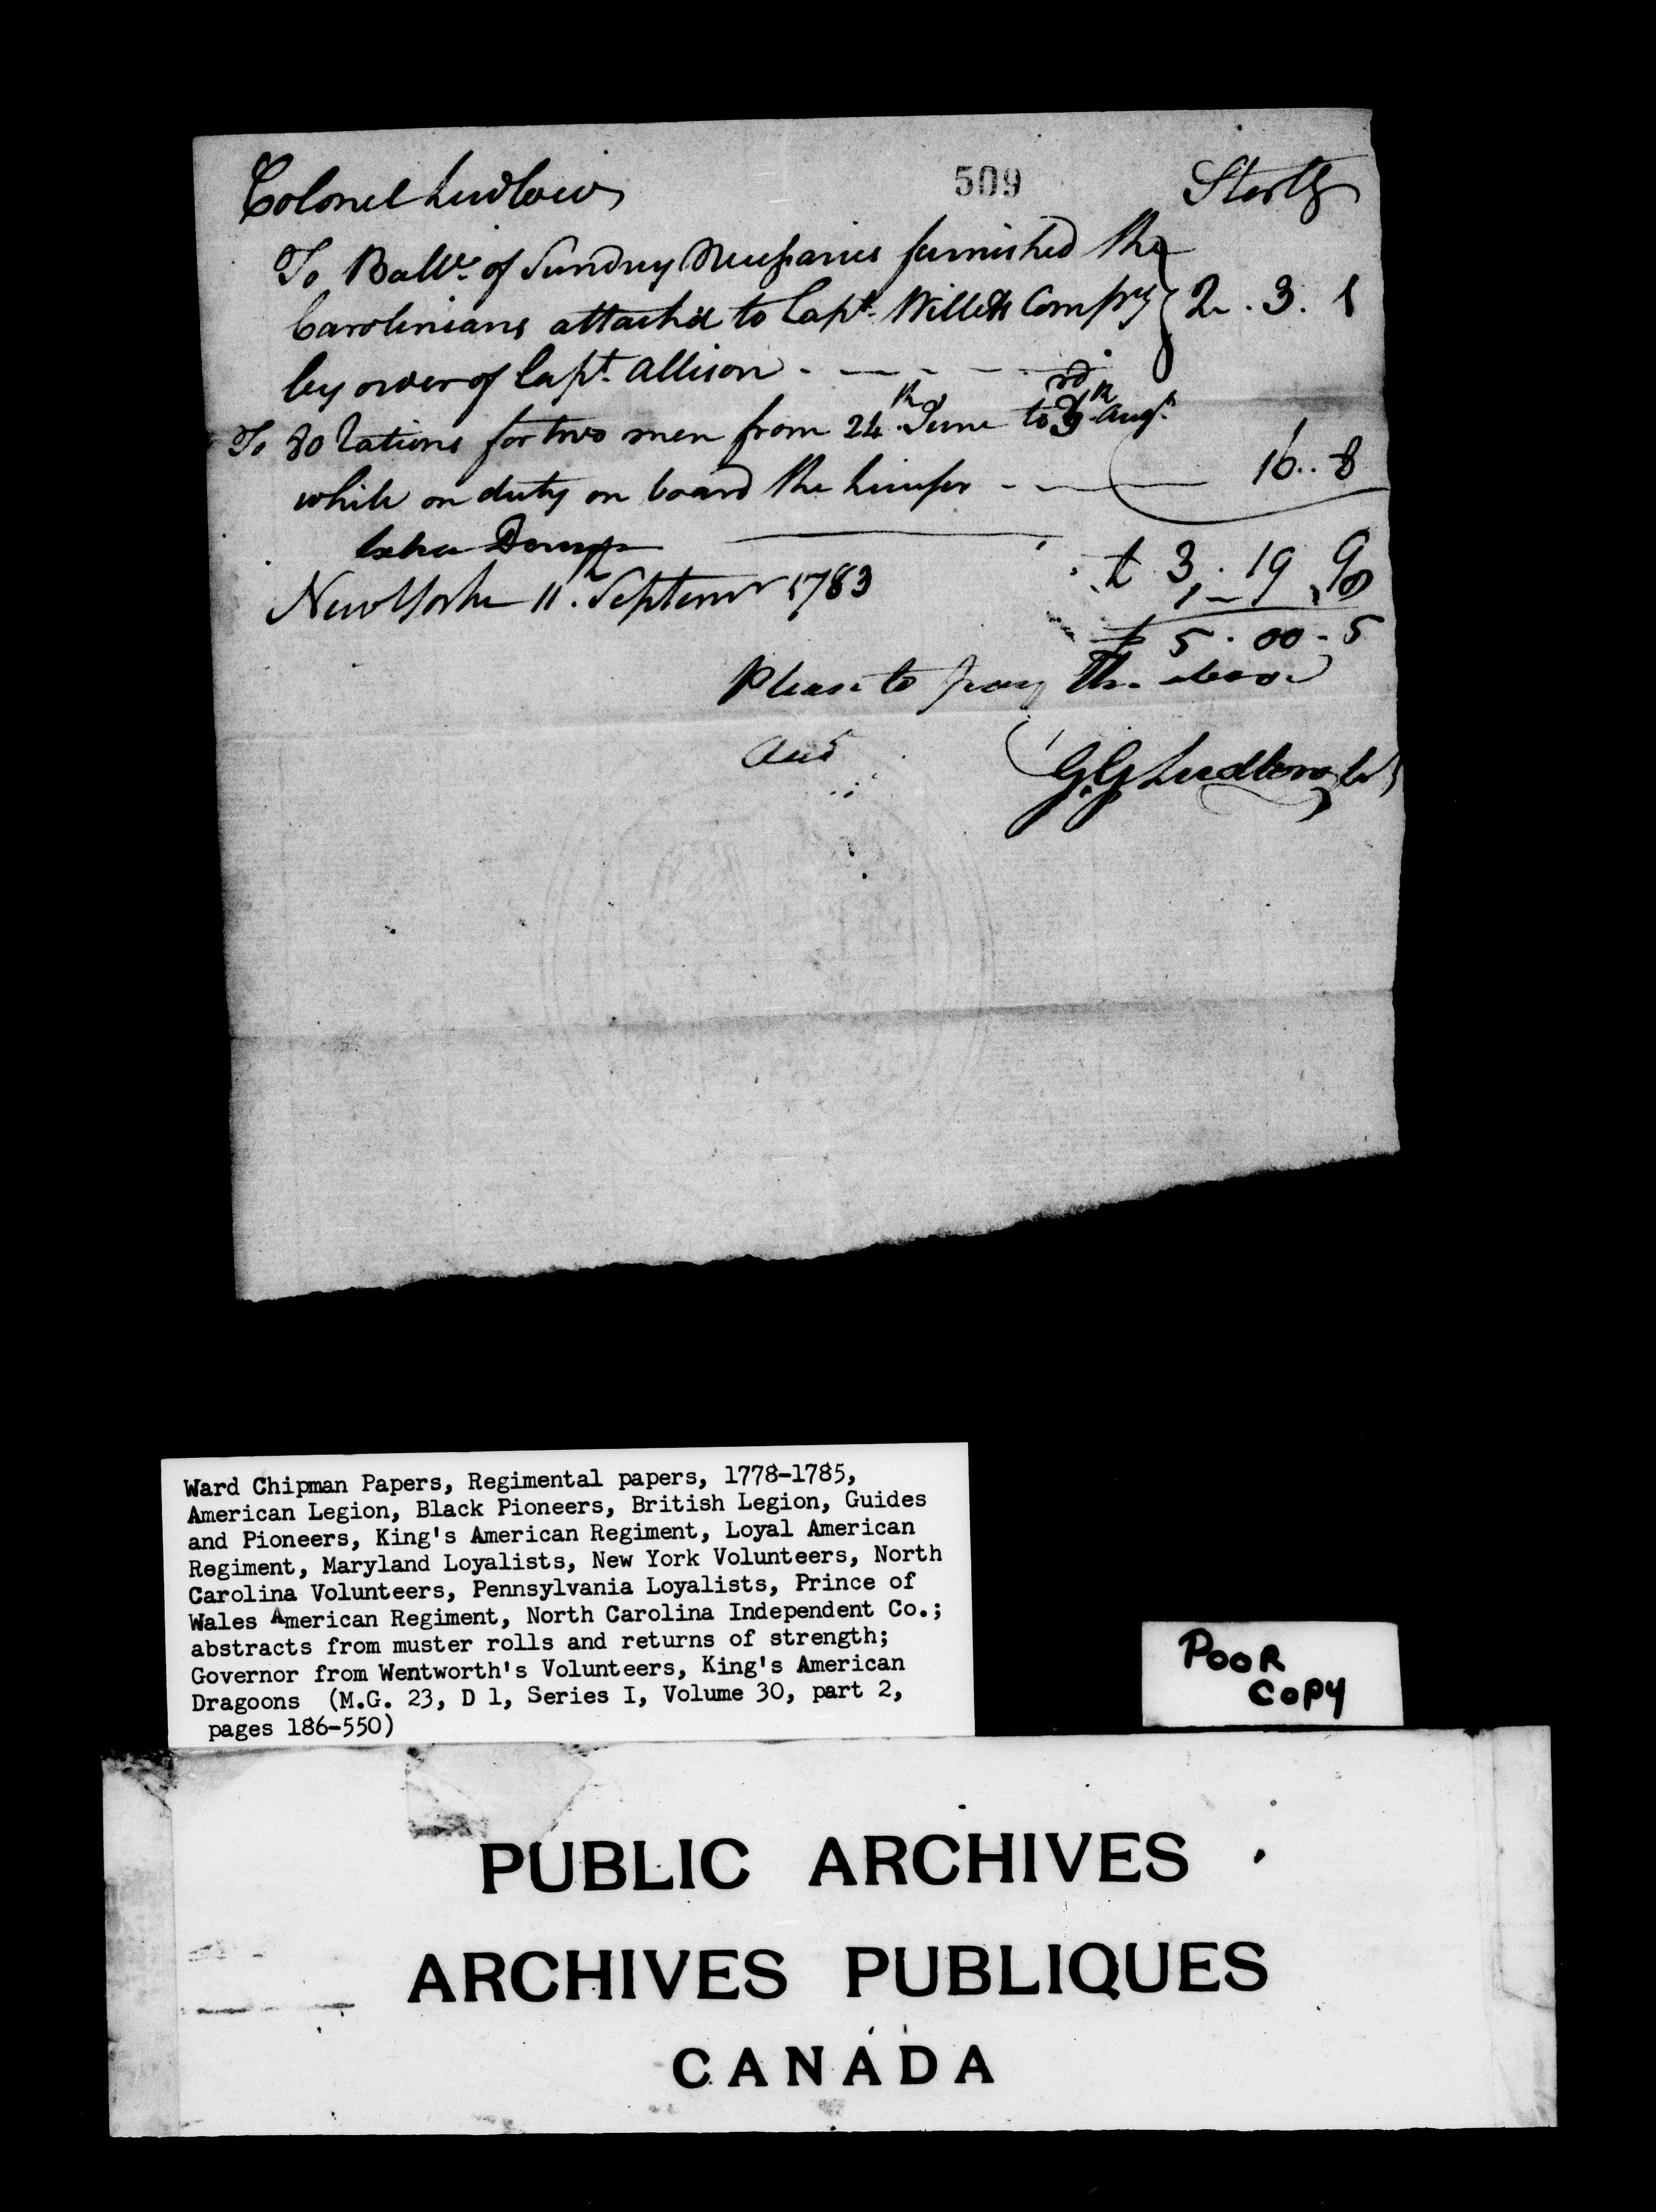 Colonel Ludlow 509 Sterlg
To Ballce. of Sundry Necessaries furnished the
Carolinians attach'd to Capt. Willett Compy 2 . 3 . 1
by order of Capt. Allison
To 80 Rations for two men from 24th June to Augt.
while on duty on board the 16 . . 8
Extra
New York 11th Septemr 1783 £ 3 . 19 9
£ 5 . 00 . 5
Please to pay the above
and
G. G. Ludlow Col
Ward Chipman Papers, Regimental papers, 1778-1785,
American Legion, Black Pioneers, British Legion, Guides
and Pioneers, King's American Regiment, Loyal American
Regiment, Maryland Loyalists, New York Volunteers, North
Carolina Volunteers, Pennsylvania Loyalists, Prince of
Wales American Regiment, North Carolina Independent Co.;
abstracts from muster rolls and returns of strength;
Governor from Wentworth's Volunteers, King's American
Dragoons (M.G. 23, D 1, Series I, Volume 30, part 2,
pages 186-550)
POOR
COPY
PUBLIC ARCHIVES
ARCHIVES PUBLIQUES
CANADA